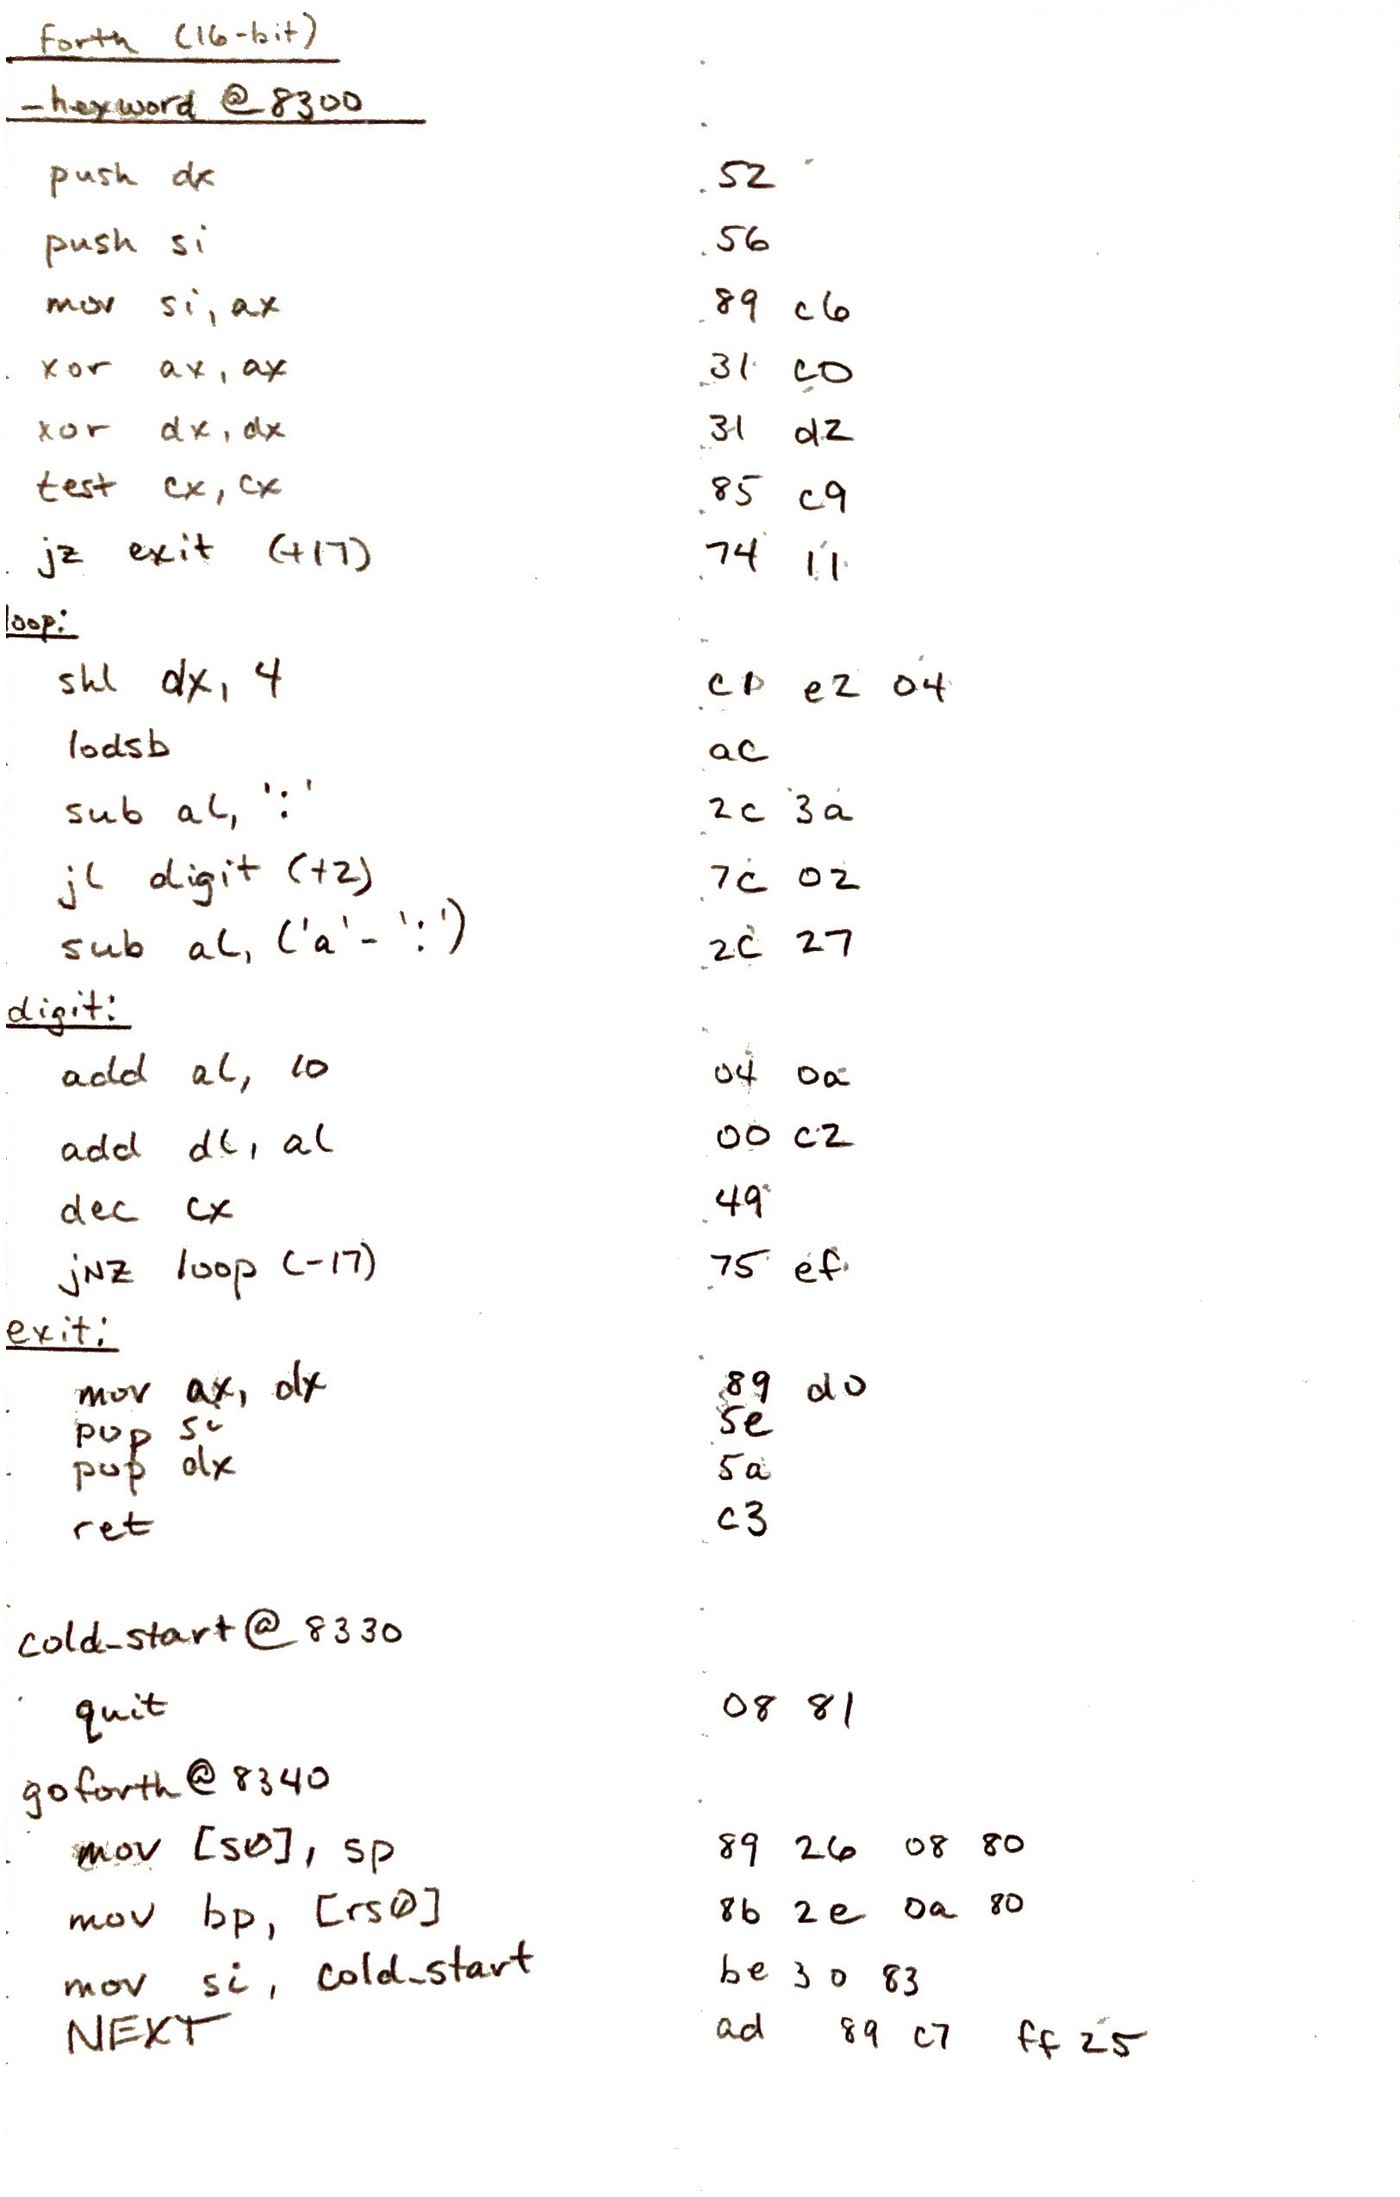 forth (16-bit)
-hexword @ 8300
push dx 52
push si 56
mov si, ax 89 c6
xor ax, ax 31 c0
xor dx, dx 31 d2
test cx, cx 85 c9
jz exit (+17) 74 11
loop:
shl dx, 4 c1 e2 04
lodsb ac
sub al, ':' 2c 3a
jl digit (+2) 7c 02
sub al, ('a'-':') 2c 27
digit:
add al, 10 04 0a
add dl, al 00 c2
dec cx 49
jNZ loop (-17) 75 ef
exit:
mov ax, dx 89 d0
pop si 5e
pop dx 5a
ret c3
cold_start @ 8330
quit 08 81
goforth @ 8340
mov [s0], sp 89 26 08 80
mov bp, [rs0] 8b 2e 0a 80
mov si, cold_start be 30 83
NEXT ad 89 c7 ff 25